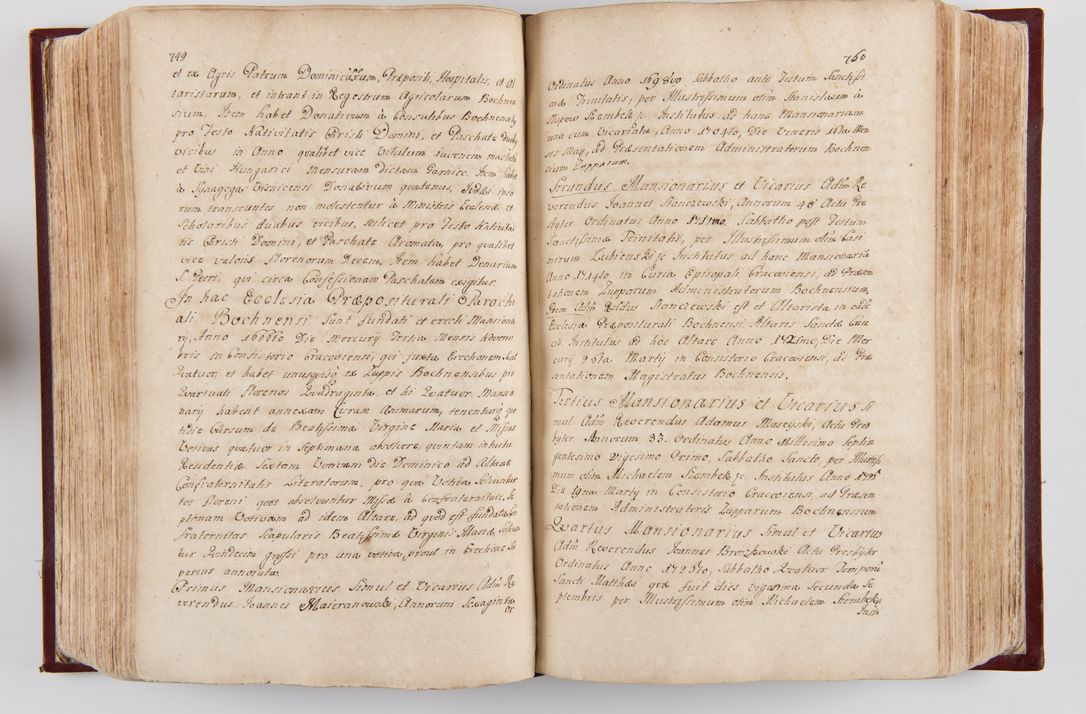 749
et ex Agris Patrum Dominicanorum, Præpositi, Hospitalis, et Al
taristarum, et intrant in Regestrum Agricolarum Bochnen
sium, Item habet Donativum à Consulibus Bochnensib,
pro Festo Nativitatis Christi Domini, et Paschate duab,
vicibus in Anno qualibet vice Vitulum iuvenem
et Vini Hungarici Mensuram dictam Garniec. Item habet
à Synagoga Visnicensi Donativum quatenus, Judæi
rum transeuntes non molestentur à Ministris Ecclesiæ et
Scholaribus duabus vicibus, scilicet pro Festo Nativita
tis Christi Domini, et Paschate Aromata, pro qualibet
vice valoris florenorum Decem, Item habet Denarium
S. Petri, qui circa Confessionem Paschalem exigitur.
In hac Ecclesia Præpositurali Paroch
ali Bochnensi Sunt fundati et erecti Mansiona
rij, Anno Die Mercurij Tertia Mensis Novem
bris in Consistorio Cracoviensi, qui juxta Erectionem sunt
Quatuor, et habet unusquisq ex Zuppis Bochnensibus pro
Quartuali florenos Quadraginta, et hi Quatuor Manso
narij habent annexam Curam Animarum, tenenturq quo
tidie Cursum de Beatissima Virgine Maria et Missas
Votivas quatuor in Septimana absolvere, quintam intuitu
Residentiæ Sextam Votivam die Dominico ad Altare
Confraternitatis Literatorum, pro qua Votiva Solvuntur
tot floreni quot absolvuntur Missæ à Confraternitate, Se
ptimam Votivam ad idem Altare, ad quod est fundata Con
fraternitas Scapularis Beatissimæ Virginis Mariæ, Solvun
tur Quindecim grossi pro una votiva, prout in Erectione Su
perius annotata.
Primus Mansionarius Simul et Vicarius Adm Re
verendus Joannes Maieranowski, Annorum Sexaginta
Or
760
Ordinatus Anno 1698vo Sabbatho ante Festum Sanctissi
mæ Trinitatis, per Illustrissimum olim Stanislaum à
Słupow Szembek Institutus ad hanc Mansionariam
una cum Vicariatu, Anno 1704to, Die Veneris 16ta Men
sis Maij, ad Præsentationem Administratorum Bochnen
sium Zupparum.
Secundus Mansionarius et Vicarius Adm Re
verendus Joannes Stanczewski, Annorum 48 Actu Pre
byter Ordinatus Anno Sabbatho post Festum
Sanctissimæ Trinitatis, per Illustrissimum olim Casi
mirum Łubienski Institutus ad hanc Mansionaria
Anno 1714to, in Curia Episcopali Cracoviensi, ad Præsen
tationem Zupparum Administratorum Bochnensium,
Idem Adm Rndus Stanczewski est et Altarista in eade
Ecclesia Præpositurali Bochnensi Altaris Sanctæ Cru
cis Institutus ad hoc Altare Anno Die Mer
curij Martij in Consistorio Cracoviensi, ad Præ
sentationem Magistratus Bochnensis.
Tertius Mansionarius et Vicarius Si
mul Adm Reverendus Adamus Actu Pres
byter Annorum 33. Ordinatus Anno Millesimo Septin
gentesimo Vigesimo Primo, Sabbatho Sancto, per Illustris
mum olim Michaelem Szembek Institutus Anno
Die 19na Martij in Consistorio Cracoviensi, ad Præsen
tationem Administratoris Zupparum Bochnensium
Quartus Mansionarius Simul et Vicarius
Adm Reverendus Joannes Brozkowski Actu Presbyter
Ordinatus Anno 1723tio, Sabbatho Quatuor Temporu
Sancti Matthæi quæ fuit dies vigesima Secunda Se
ptembris per Illustrissimum olim Michaelem Szembek
Insti